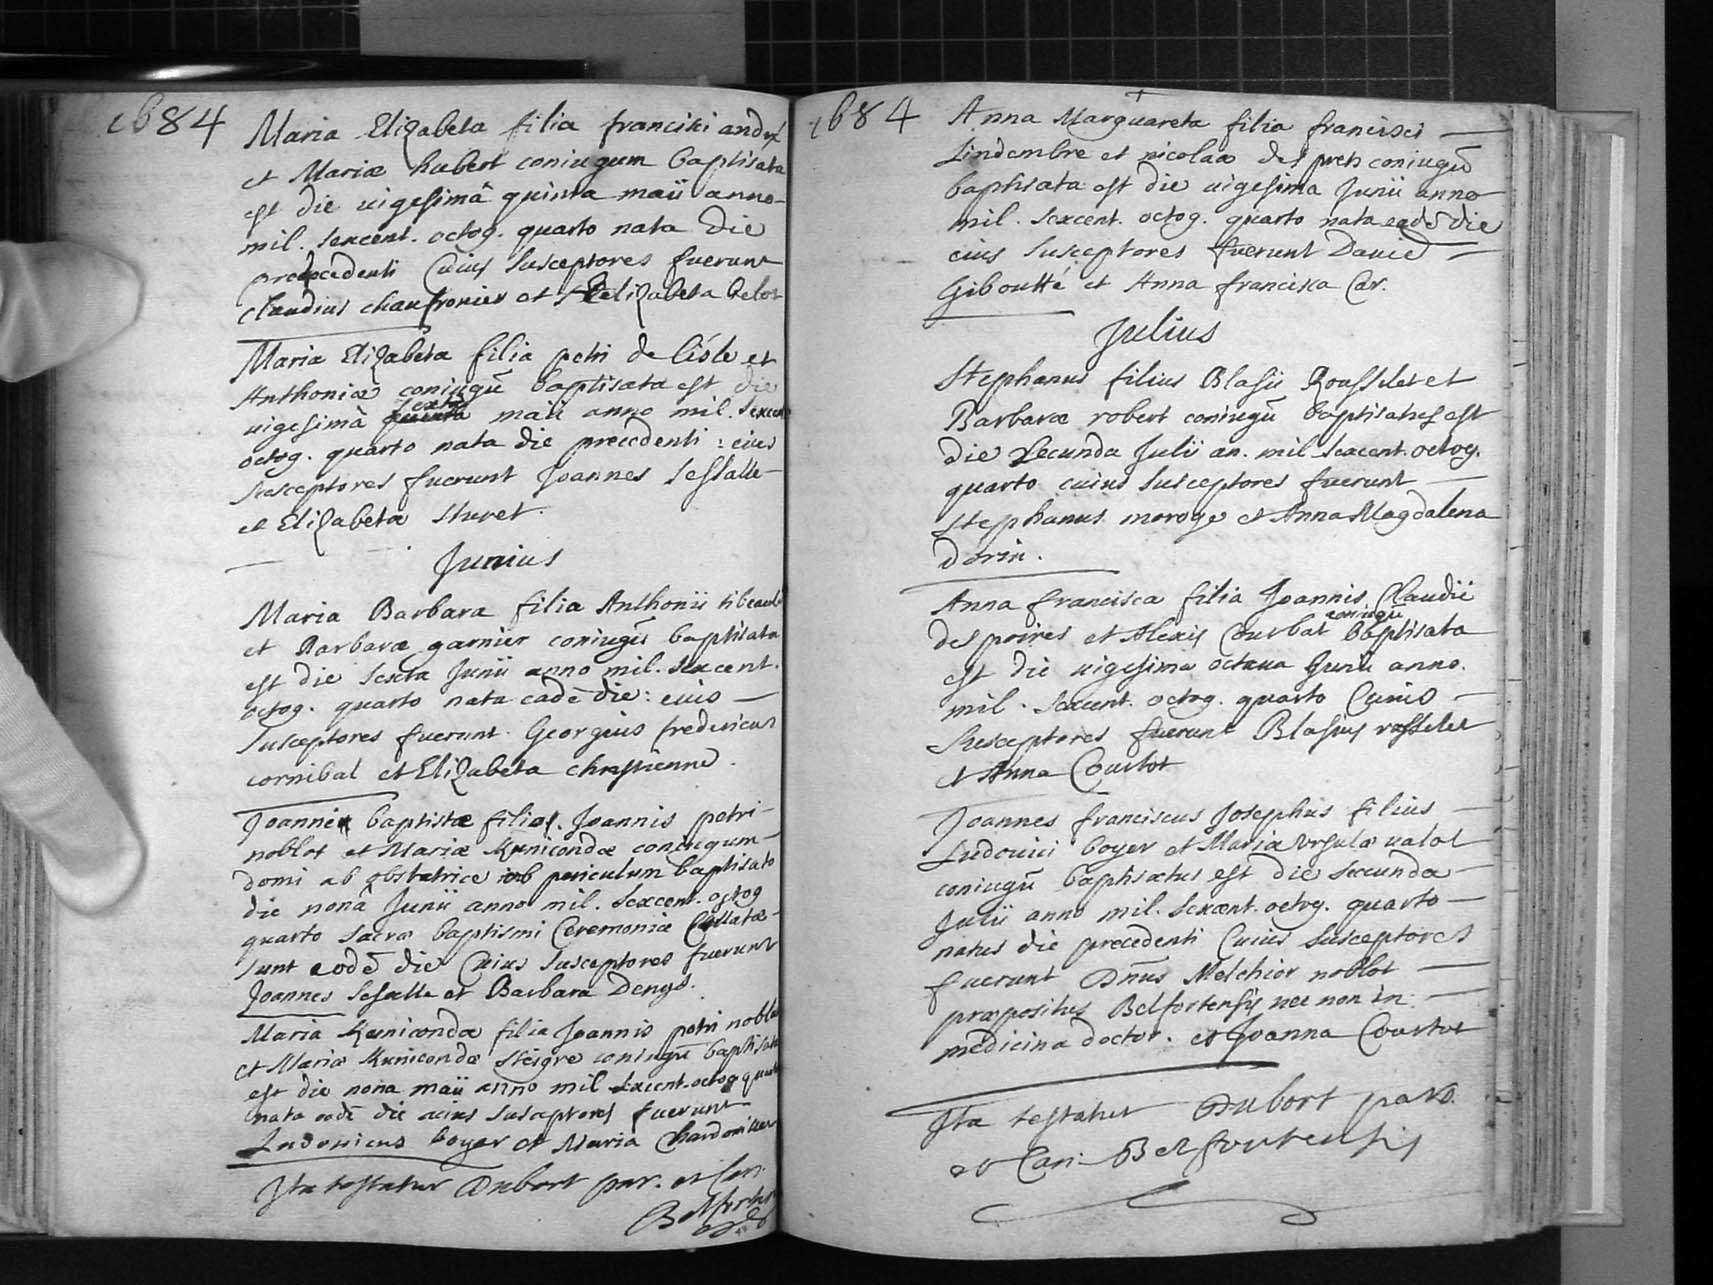 1684
Maria Elizabeta filia francisci
et Mariæ hubert coniugum baptisata
est die uigesimâ quinta maii anno
mil. sexcent. octog. quarto nata die
precedenti Cuius susceptores fuerunt
Claudius chaufronier et Elizabeta belot
Maria Elizabeta filia petri de lisle et
Anthoniæ coniugū baptisata est die
uigesimâ sexta maii anno mil. sexcent
octog. quarto nata die precedenti : eius
susceptores fuerunt Joannes sessalle
et Elizabeta
Junius
Maria Barbara filia Anthonii tibeaud
et Barbaræ garnier coniugū baptisata
est die sexta Junii anno mil. sexcent.
octog. quarto nata eadē die : cuis
susceptores fuerunt Georgius fredericus
cornibal et Elizabeta chrestienne.
Joanne baptistæ filio Joannis petri
noblot et Mariæ Kunicondæ coniugum
domi ab obstetrice ob periculum baptisato
die nonâ Junii anno mil. sexcent. octog
quarto sacræ baptismi Ceremoniæ Collatæ
sunt eodē die Cuius susceptores fuerunt
Joannes sessalle et Barbara Denys.
Maria Kuniconda filia Joannis petri noblot
et Mariæ Kunicondæ steigre coniugū baptisata
est die nona maii anno mil sexcent. octog quarto
nata eadē die cuius susceptores fuerunt
Ludouicus boyer et Maria
Ita testatur Dubort par. et Can.
1684
Anna Marguareta filia francisci
Lindembre et nicolaæ des prets coniugū
baptisata est die uigesima Junii anno
mil. sexcent. octog. quarto nata eadē die
cuius susceptores fuerunt Dauid
Giboutté et Anna francisca Car.
Julius
Stephanus filius Blasii Rousselet et
Barbaræ robert coniugū baptisatus est
die secunda Julii an. mil sexcent. octog.
quarto cuius susceptores fuerunt
stephanus moroge et Anna Magdalena
dorin.
Anna francisca filia Joannis Claudii
des poires et Alexis Courbat coniugū baptisata
est die uigesima octaua Junii anno.
mil. sexcent. octog. quarto Cuius
susceptores fuerunt Blasius rosselet
et Anna Courtot
Joannes franciscus Josephus filius
Ludouici boyer et Mariæ Vrsulæ
coniugū baptisatus est die secunda
Julii anno mil. sexcent. octog. quarto
natus die precedenti Cuius susceptores
fuerunt Dnūs Melchior noblot
præpositus Belfortensis nec non in
medicina doctor. et Joanna Courtot
Ita testatur Dubort par.
et Can. Belfortensis